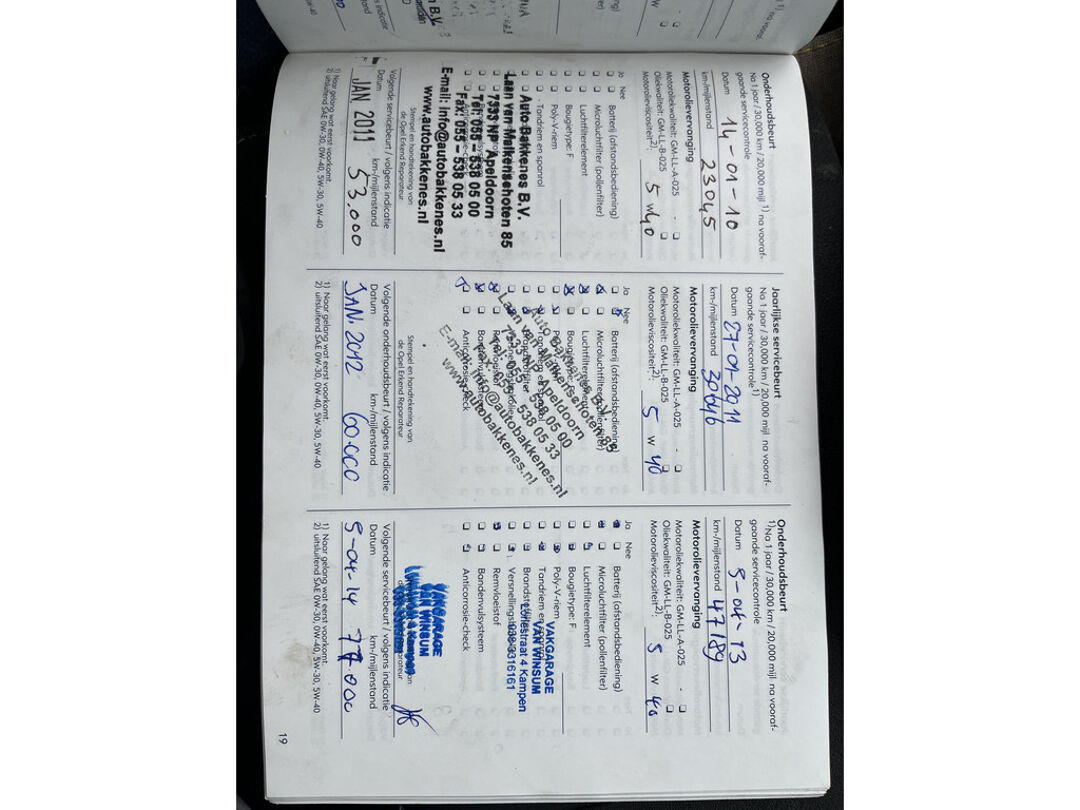 Onderhoudsbeurt
Na 1 jaar / 30,000 km / 20,000 mijl 1) na vooraf-
gaande servicecontrole
Datum 14-01-10
km-/mijlenstand 23045
Motorolievervanging
Motoroliekwaliteit: GM-LL-A-025
Oliekwaliteit: GM-LL-B-025
Motorolieviscositeit2): 5 W 40
Ja Nee
Batterij (afstandsbediening)
Microluchtfilter (pollenfilter)
Luchtfilterelement
Bougietype: F
Poly-V-riem
- Tandriem en spanrol
Auto Bakkenes B.V.
Laan van Malkenschoten 85
7333 NP Apeldoorn
Tel: 055 - 538 05 00
Fax: 055 - 538 05 33
E-mail: info@autobakkenes.nl
www.autobakkenes.nl
Stempel en handtekening van
de Opel Erkend Reparateur
Volgende servicebeurt / volgens indicatie
Datum km-/mijlenstand
JAN 2011 53.000
1) Naar gelang wat eerst voorkomt.
2) uitsluitend SAE 0W-30, 0W-40, 5W-30, 5W-40
Jaarlijkse servicebeurt
Na 1 jaar / 30,000 km / 20,000 mijl na vooraf-
gaande servicecontrole1)
Datum 27-01-2011
km-/mijlenstand 30646
Motorolievervanging
Motoroliekwaliteit: GM-LL-A-025
Oliekwaliteit: GM-LL-B-025
Motorolieviscositeit2): 5 W 40
Ja Nee
Batterij (afstandsbediening)
Microluchtfilter (pollenfilter)
Luchtfilterelement
Bougietype: F
Anticorrosie-check
Auto Bakkenes B.V.
Laan van Malkenschoten 85
7333 NP Apeldoorn
Tel: 055 - 538 05 00
Fax: 055 - 538 05 33
E-mail: info@autobakkenes.nl
www.autobakkenes.nl
Stempel en handtekening van
de Opel Erkend Reparateur
Volgende onderhoudsbeurt / volgens indicatie
Datum km-/mijlenstand
JAN. 2012 60.000
1) Naar gelang wat eerst voorkomt.
2) uitsluitend SAE 0W-30, 0W-40, 5W-30, 5W-40
Onderhoudsbeurt
1)Na 1 jaar / 30,000 km / 20,000 mijl na vooraf-
gaande servicecontrole
Datum 9-04-13
km-/mijlenstand 47189
Motorolievervanging
Motoroliekwaliteit: GM-LL-A-025
Oliekwaliteit: GM-LL-B-025
Motorolieviscositeit2): 5 W 40
Ja Nee
Batterij (afstandsbediening)
Microluchtfilter (pollenfilter)
Luchtfilterelement
Bougietype: F
Poly-V-riem
Tandriem en
Remvloeistof
Bandenvulsysteem
Anticorrosie-check
VAKGARAGE
VAN WINSUM
Loriestraat 4 Kampen
038-3316161
VAKGARAGE
VAN WINSUM
Volgende servicebeurt / volgens indicatie
Datum km-/mijlenstand
9-04-14
1) Naar gelang wat eerst voorkomt.
2) uitsluitend SAE 0W-30, 0W-40, 5W-30, 5W-40
19